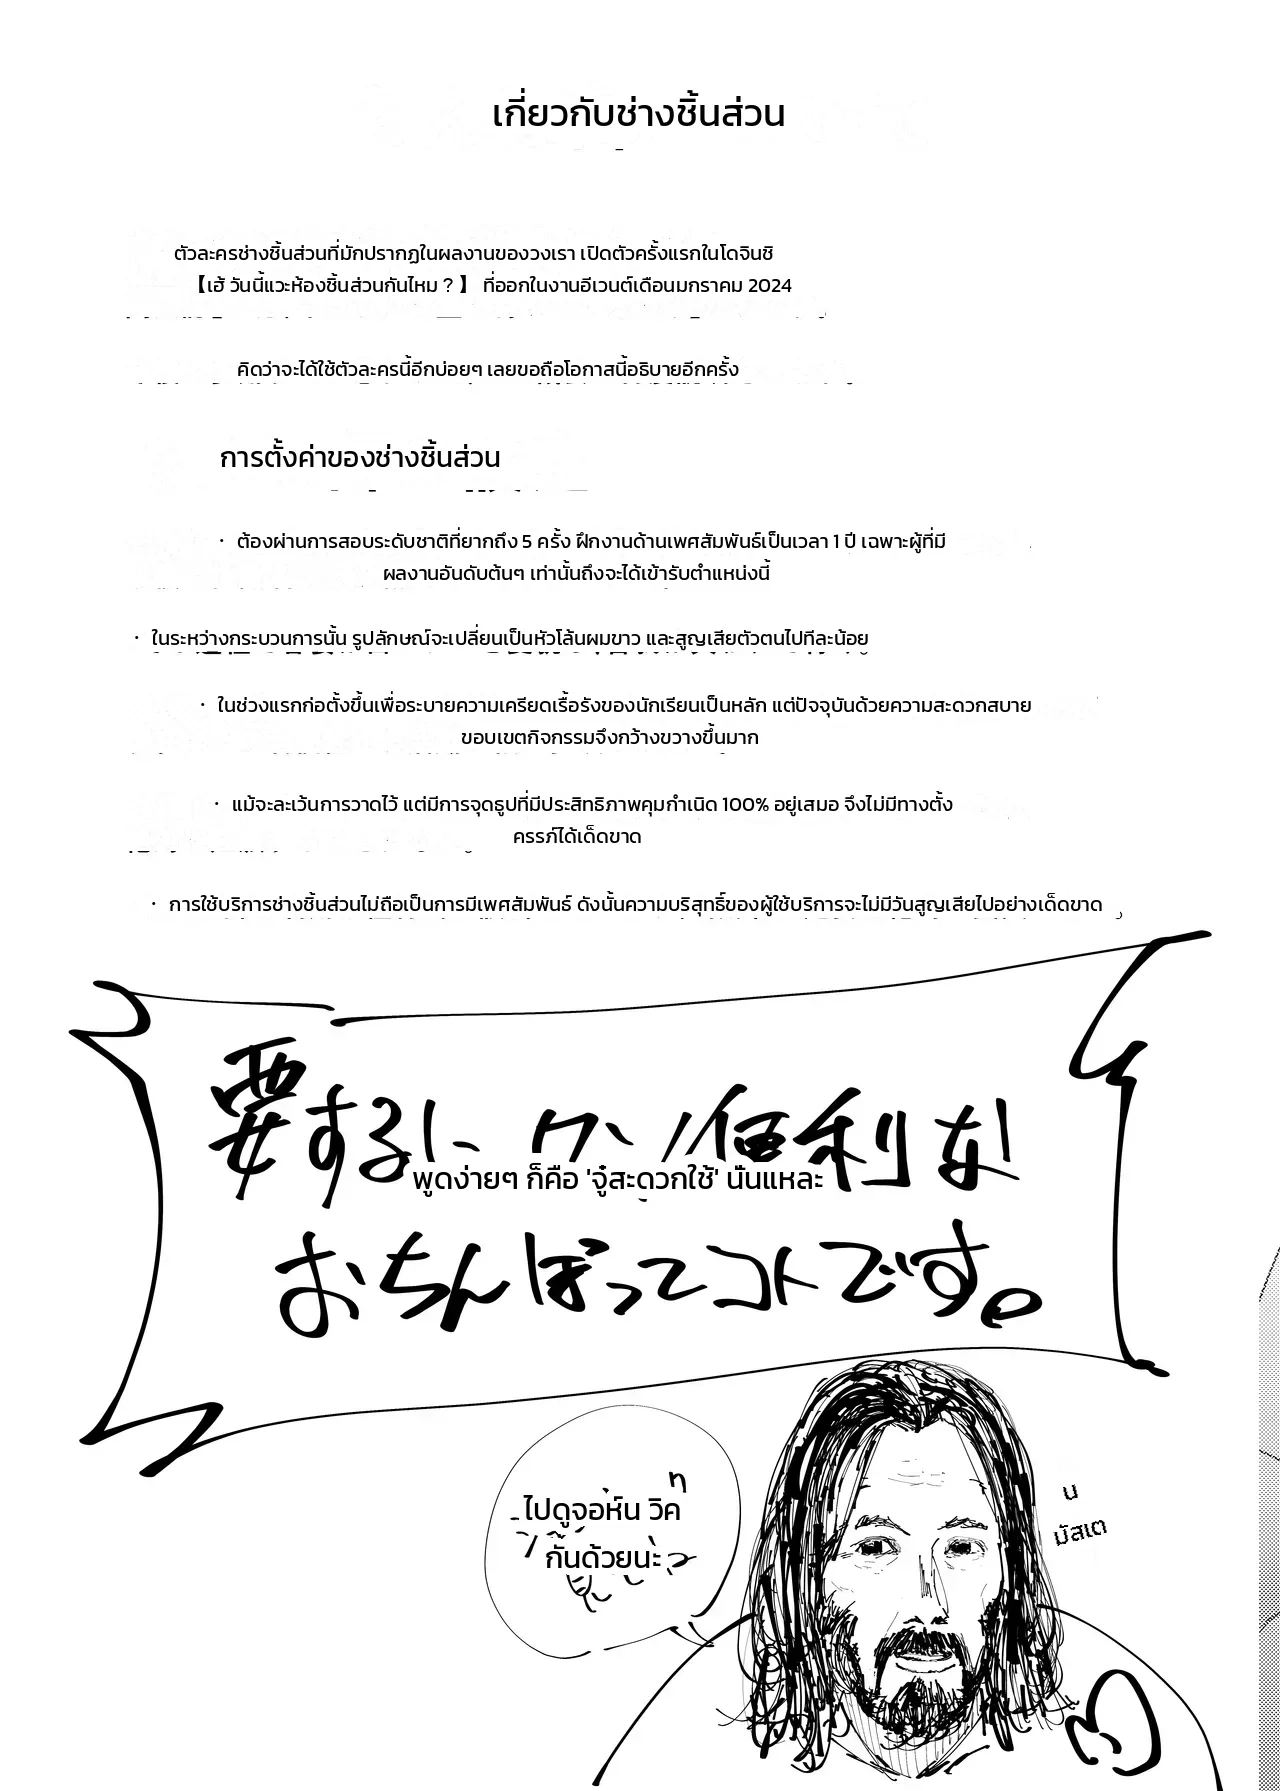 เกี่ยวกับช่างชิ้นส่วน
ตัวละครช่างชิ้นส่วนที่มักปรากฏในผลงานของวงเรา เปิดตัวครั้งแรกในโดจินชิ
【เฮ้ วันนี้แวะห้องชิ้นส่วนกันไหม ? 】 ที่ออกในงานอีเวนต์เดือนมกราคม 2024
คิดว่าจะได้ใช้ตัวละครนี้อีกบ่อยๆ เลยขอถือโอกาสนี้อธิบายอีกครั้ง
การตั้งค่าของช่างชิ้นส่วน
・ ต้องผ่านการสอบระดับชาติที่ยากถึง 5 ครั้ง ฝึกงานด้านเพศสัมพันธ์เป็นเวลา 1 ปี เฉพาะผู้ที่มี
ผลงานอันดับต้นๆ เท่านั้นถึงจะได้เข้ารับตำแหน่งนี้
・ ในระหว่างกระบวนการนั้น รูปลักษณ์จะเปลี่ยนเป็นหัวโล้นผมขาว และสูญเสียตัวตนไปทีละน้อย
・ ในช่วงแรกก่อตั้งขึ้นเพื่อระบายความเครียดเรื้อรังของนักเรียนเป็นหลัก แต่ปัจจุบันด้วยความสะดวกสบาย
ขอบเขตกิจกรรมจึงกว้างขวางขึ้นมาก
・ แม้จะละเว้นการวาดไว้ แต่มีการจุดธูปที่มีประสิทธิภาพคุมกำเนิด 100% อยู่เสมอ จึงไม่มีทางตั้ง
ครรภ์ได้เด็ดขาด
・ การใช้บริการช่างชิ้นส่วนไม่ถือเป็นการมีเพศสัมพันธ์ ดังนั้นความบริสุทธิ์ของผู้ใช้บริการจะไม่มีวันสูญเสียไปอย่างเด็ดขาด
要するに 便利な
พูดง่ายๆ ก็คือ 'จู๋สะดวกใช้' นั่นแหละ
おちんぽってコトです。
ไปดูจอห์น วิค
กันด้วยนะ
น
มัสเต